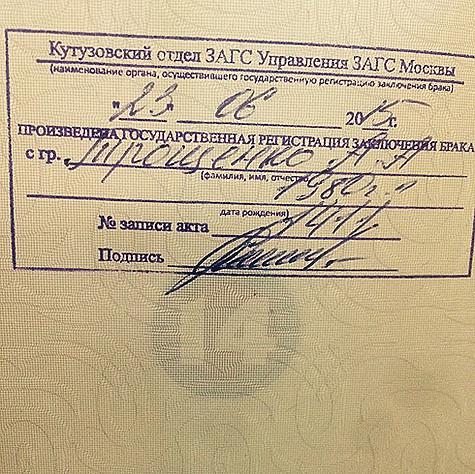 Кутузовский отдел ЗАГС Управления ЗАГС Москвы
(наименование органа, осуществившего государственную регистрацию заключения брака)
"23" 06 2015г.
ПРОИЗВЕДЕНА ГОСУДАРСТВЕННАЯ РЕГИСТРАЦИЯ ЗАКЛЮЧЕНИЯ БРАКА
с гр. Трощенко А.А
(фамилия, имя, отчество)
1980г.
дата рождения)
№ записи акта 1411
Подпись
14